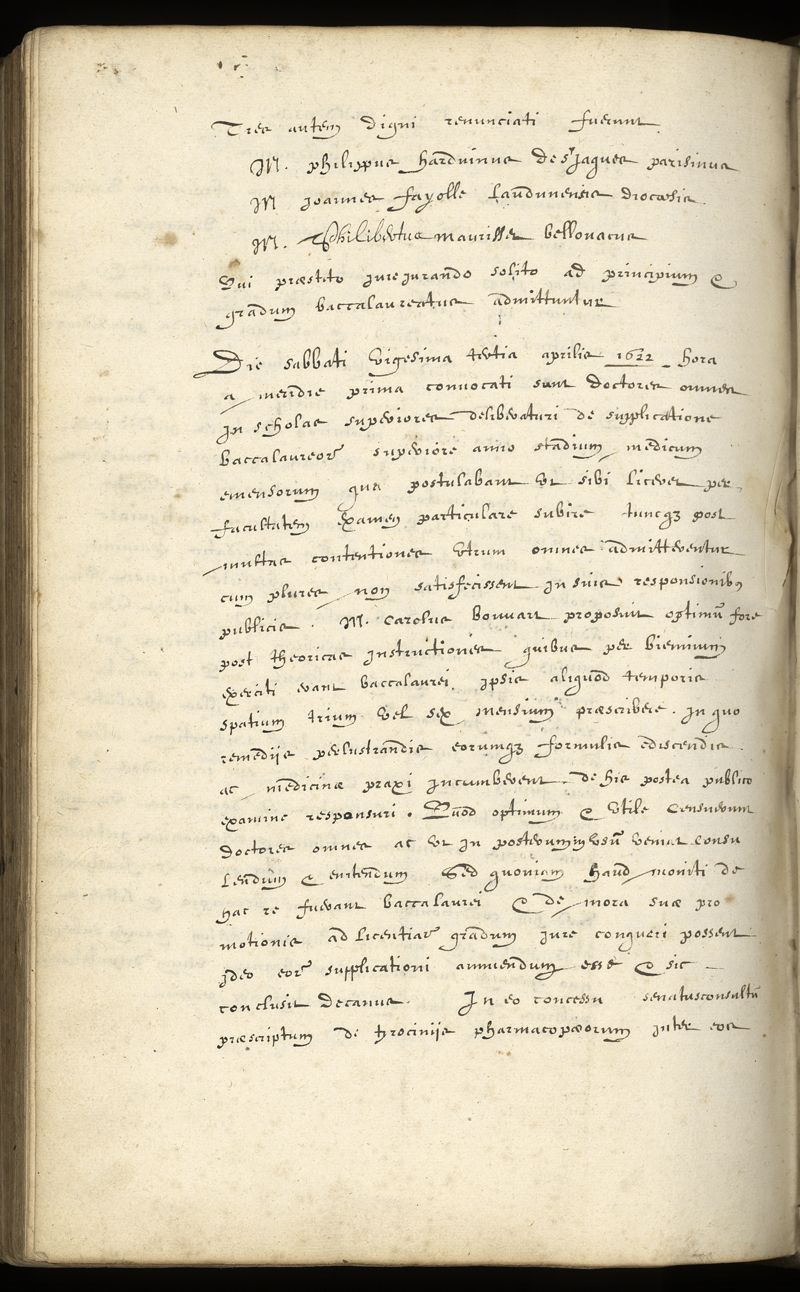 Tres autem digni renunciati fuerunt
M. philippus harduinus de st Jaques parisinus
M Joannes fayolle laudunensis diocesis.
M. Philibertus maurisse bellovacus
Qui præstito jurejurando solito ad principium &
gradum baccalaureatus admittuntur
Die sabbati vigesima tertia aprilis 1622 hora
a meridie prima convocati sunt doctores omnes
in scholas superiores deliberaturi de supplicatione
baccalaureor superiore anno stadium medicum
emensorum qua postulabant ut sibi liceret per
facultatem examen particulare subire tuncq post
multas contentiones utrum omnes admitterentur
cum plures non satisfecissent in suis responsionib9
publicis. M. Carolus bouvart proposuit optimū fore
post theoricas instructiones quibus per biennium
exerciti erant baccalaurei, ipsis aliquod temporis
spatium trium vel sex mensium præscribere. in quo
remediis perlustrandis eorumq formulis ediscendis.
ac medicinæ praxi incumberent. de his postea publico
examine responsuri. Quod optimum & utile censuerunt
doctores omnes ac ut in posterum in usū veniat consu
lendum & enitendum sed quoniam haud moniti de
hac re fuerant baccalaurei & de mora suæ pro
motionis ad licentiar gradum jure conqueri possent
ideo eor supplicationi annuendum esse & sic
conclusit decanus. In eo concessu senatusconsultū
præscriptum de tirociniis pharmacopæorum inter eos